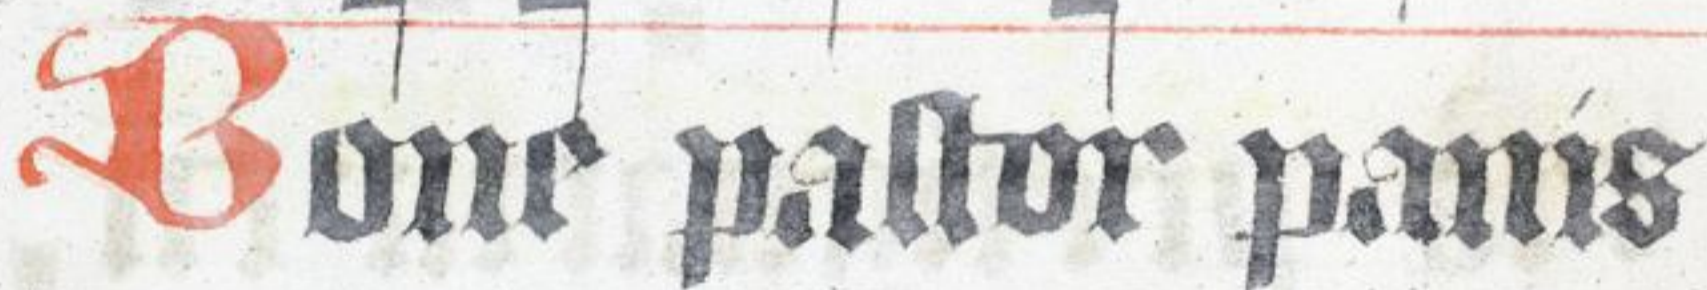 Bone pastor panis